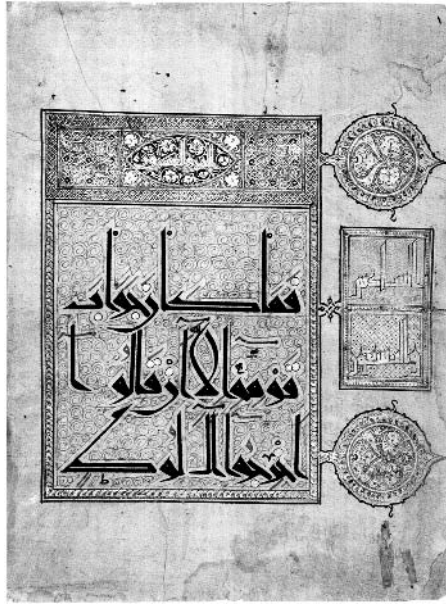 فما كان جواب
قومه الا ان قالوا
اخرجوا آل لوط